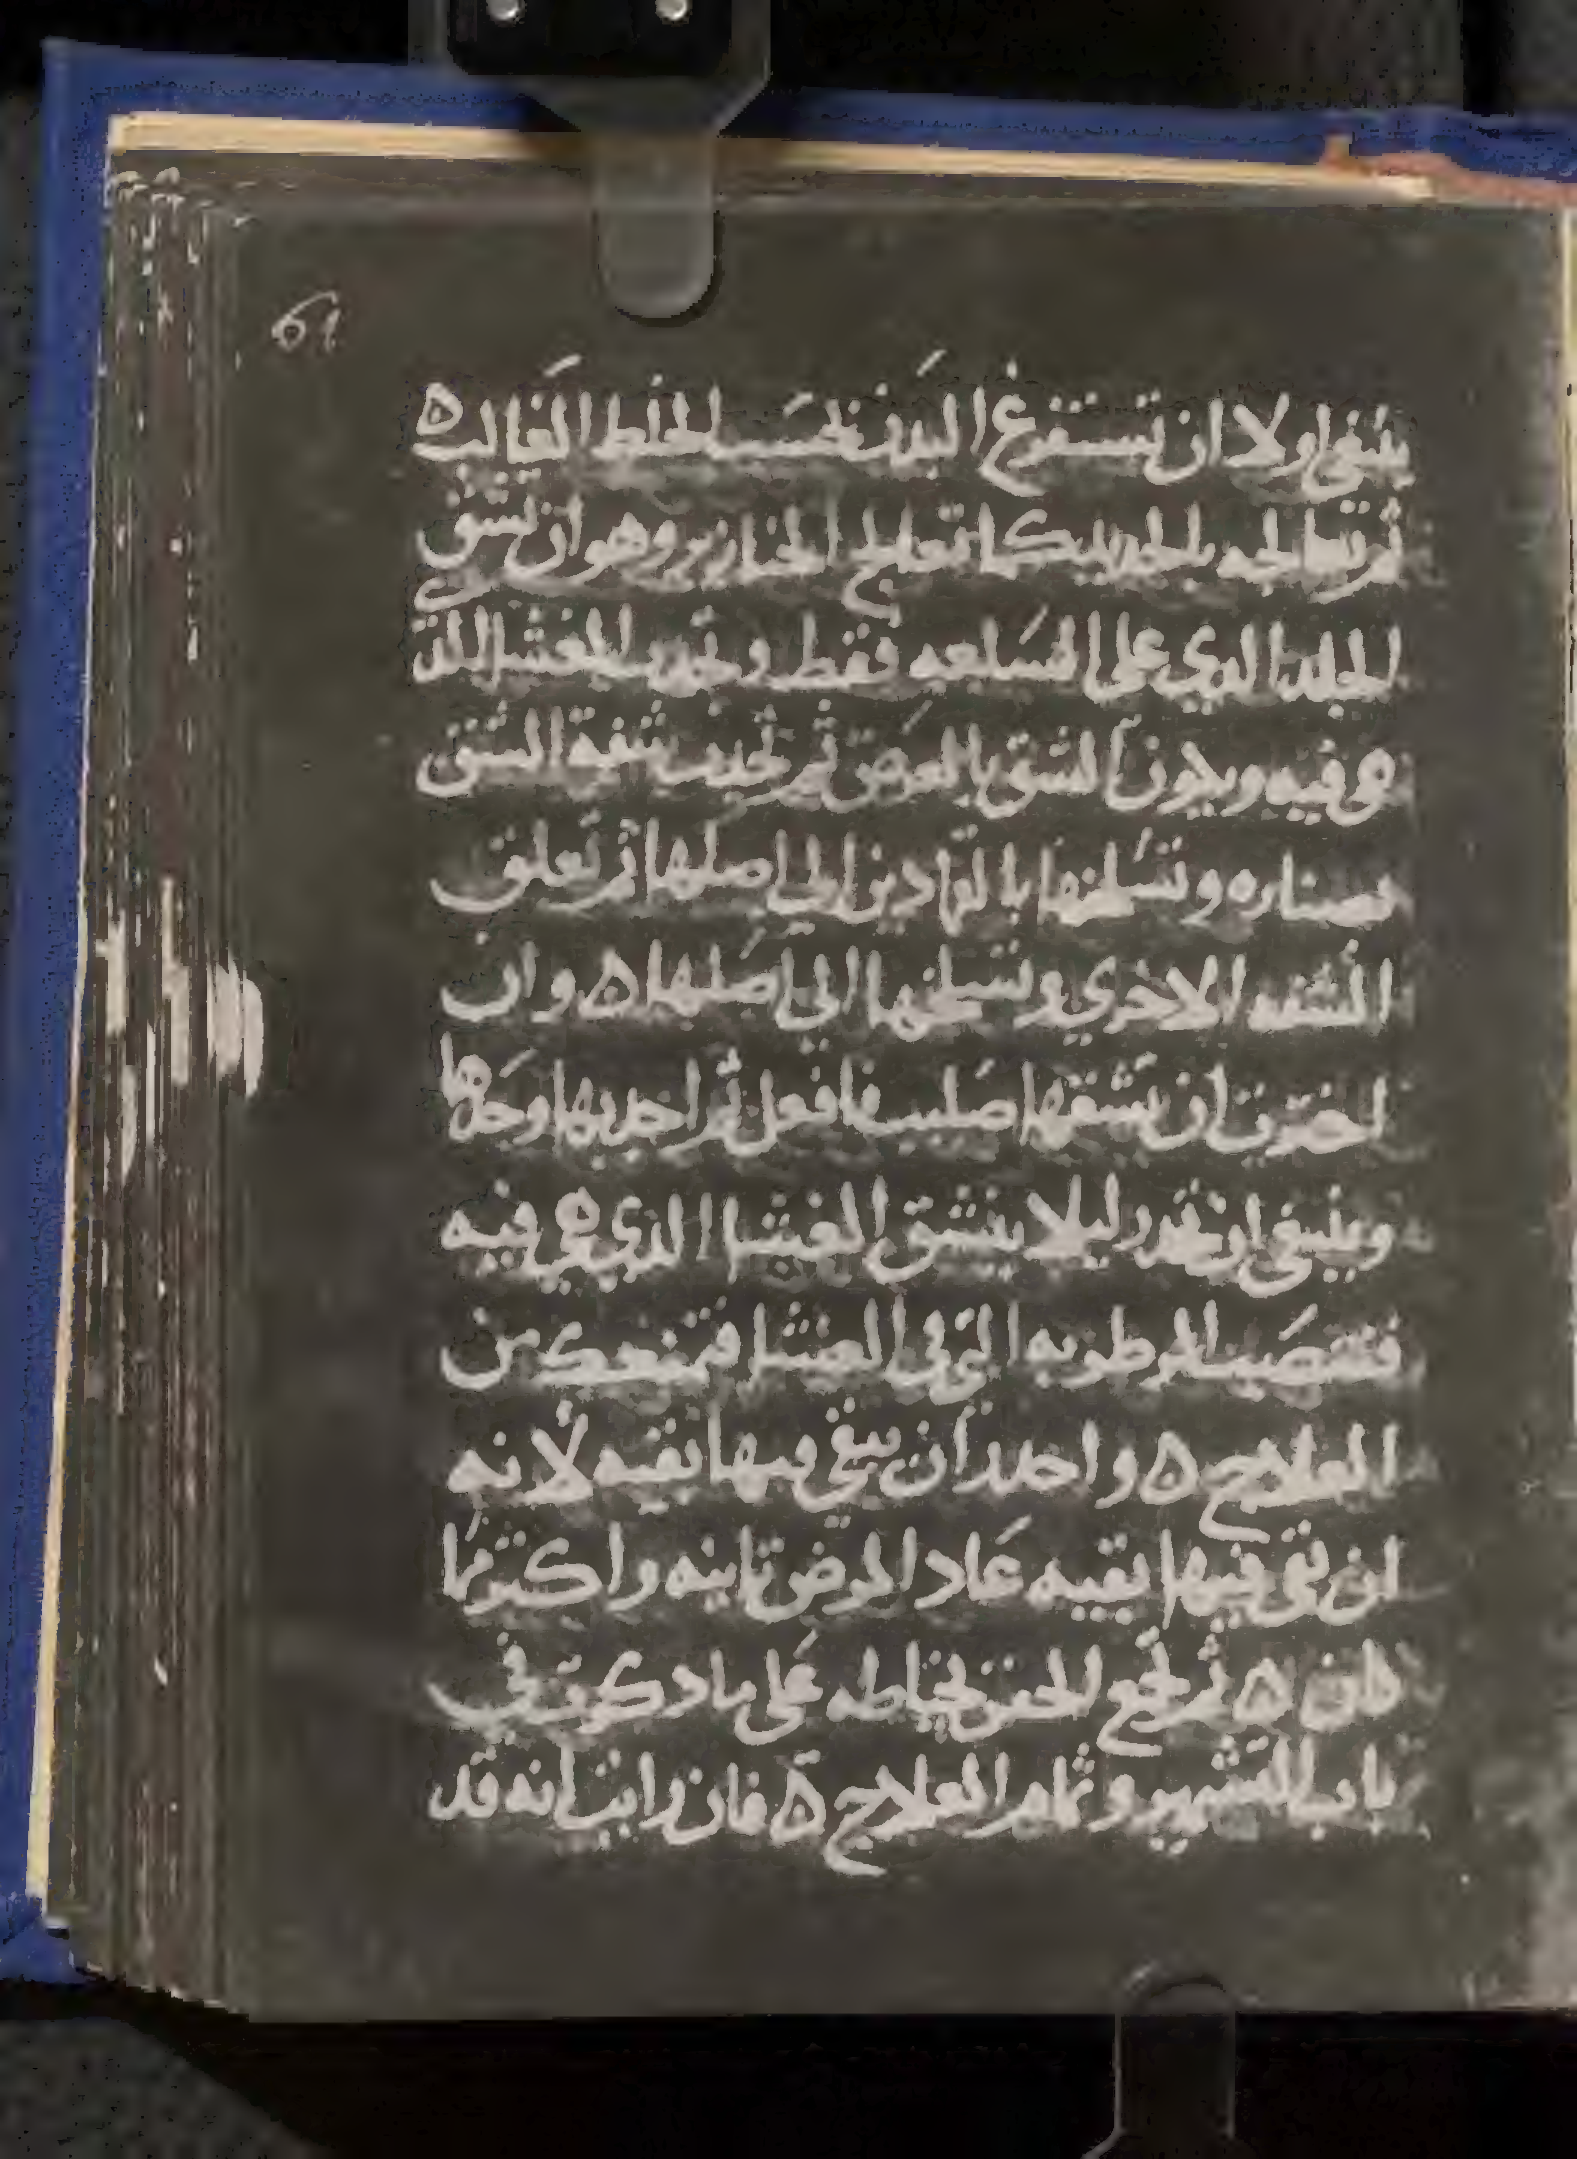 61
ينبغي اولا ان تستفرغ البدن بحسب الخلط الغالب ه
ثم تعالجه بالحديد كما تعالج الخنازير وهو ان تشق
الجلد الدي على السلعه فقط وتجدب الغشا اللدي
هي فيه ويكون الشق بالعرض ثم تجدب شفة الشق
بصناره وتسلخها بالقمادين الي اصلها ثم تعلق
الشفه الاخري وتسلخها الي اصلها ه وان
اخترت ان تشقها صليب فافعل ثم اجدبها وحدها
وينبغي ان تحدر ليلا ينشق الغشا الدي هي فيه
فتنصب الرطوبه التي في الغشا فتمنعك من
العلاج ه واحدر ان يبقي فيها بقيه لانه
ان بقي فيها بقيه عاد المرض تانيه واكتر مما
كان ه ثم تجمع الحفن بخياطه على ما دكرت في
باب التشمير وتمام العلاج ه فان رايت انه قد